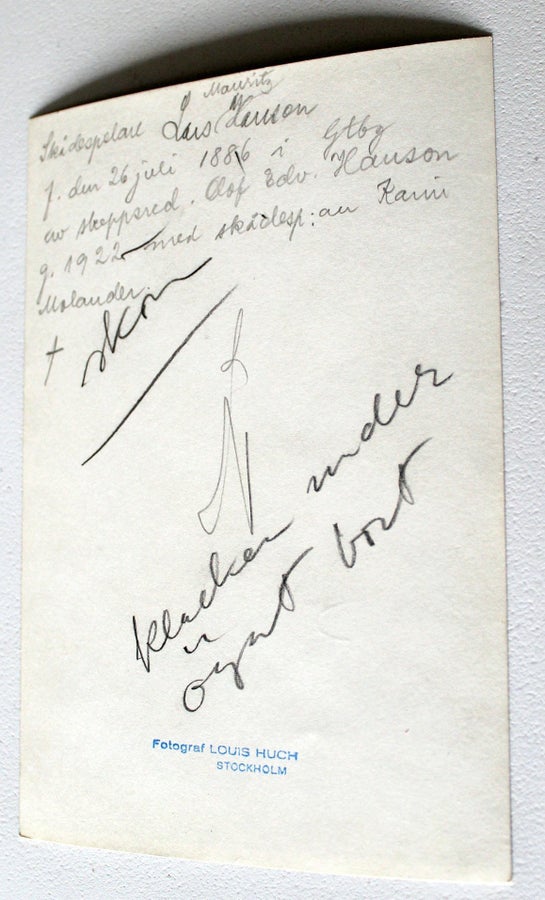 Mauritz
Skådespelare Lars Hanson
f. den 26 juli 1886 i Gtbg
av skeppsred. Olof Edv. Hanson
g. 1922 med skådesp:an Karin
Molander.
†
skon
klacken under
ögat bort
Fotograf LOUIS HUCH
STOCKHOLM